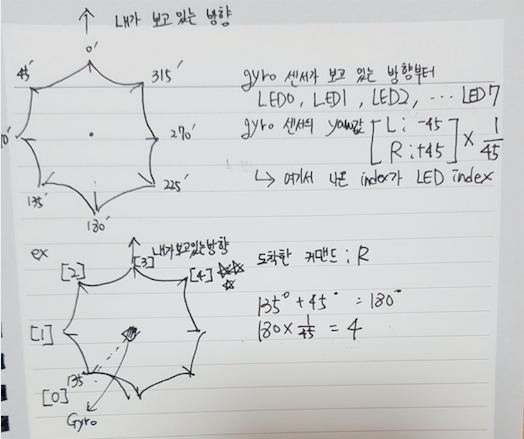 내가 보고 있는 방향
0'
45'
315'
0'
270'
135'
225'
180'
gyro 센서가 보고 있는 방향부터
LED0, LED1, LED2, ... LED7
gyro 센서의 yaw값 [L: -45 R: +45] × 1/45
↳ 여기서 나온 index가 LED index
ex
내가보고있는방향
[2]
[3]
[4] ☆☆☆
[1]
[0]
135°
Gyro
도착한 커맨드 : R
135° + 45° = 180°
180 × 1/45 = 4